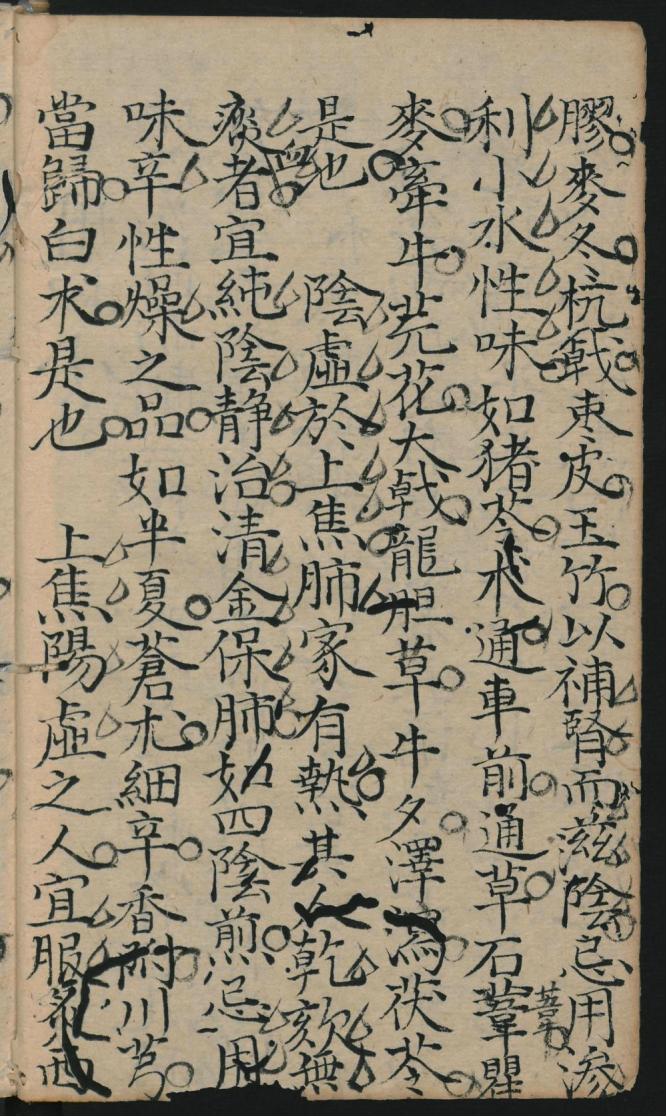 膠麥冬杭戟東皮玉竹以補腎而滋陰忌用滲
利小水性味如猪苓木通車前通草石葦瞿
麥牽牛芫花大戟龍胆草牛夕澤瀉茯苓
是也　陰虛於上焦肺家有熱其人乾欬無
痰者宜純陰静治清金保肺如四陰煎忌用
味辛性燥之品如半夏蒼朮細辛香附川芎
當歸白朮是也　上焦陽虛之人宜服